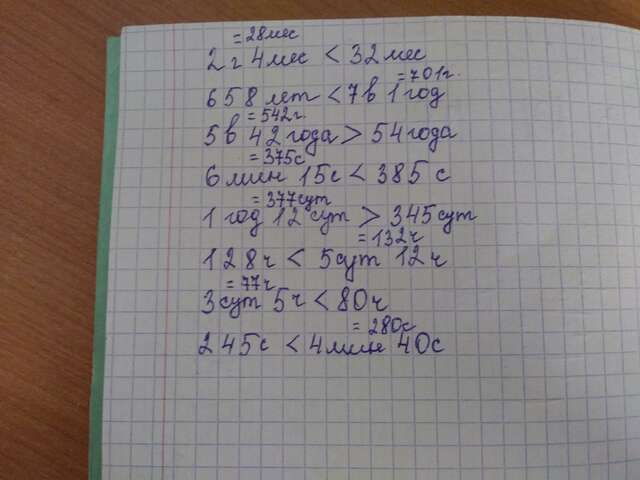 = 28мес
2 г 4мес < 32мес
= 701г.
658 лет < 7в 1 год
= 542г.
5в 42года > 54года
= 375с
6 мин 15с < 385 с
= 377сут
1 год 12 сут > 345сут
= 132ч
128ч < 5сут 12ч
= 77ч
3сут 5ч < 80ч
= 280с
245с < 4мин 40с